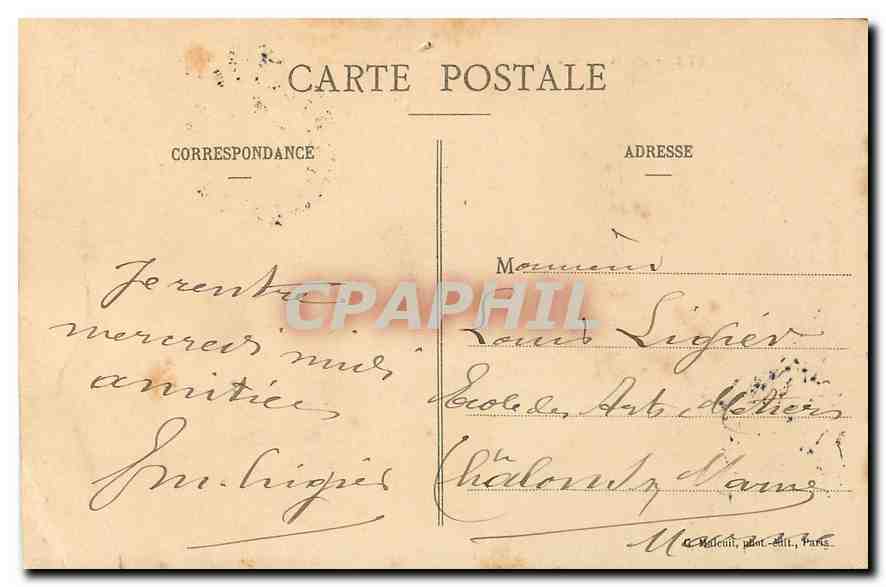 CARTE POSTALE
CORRESPONDANCE
Je rentre
mercredi midi
amitiés
Em. Ligier
ADRESSE
Monsieur
Louis Ligier
Ecole des Arts & Métiers
Châlons s/ Marne
Marne
G. Maleuit, phot.-édit., Paris
CPAPHIL